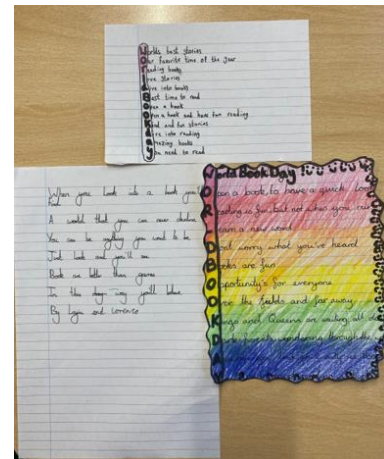 Worlds best stories
Our favorite time of the year
Reading books
Love stories
Dive into books
Best time to read
Open a book
Open a book and have fun reading
Kind and fun stories
Dive into reading
Amazing books
You need to read
When you look into a book you'll
find
A world that you can never
You can be anything you want to be
Just look and you'll see
Book are better than games
In the days you'll
By Logan and Lorenzo
World Book Day
Open a book, to have a quick look
Reading is fun, but not when you
Learn a new word
Don't worry what you've heard
Books are fun
Opportunity's for everyone
Over the fields and far away
Kings and Queens are waiting all day